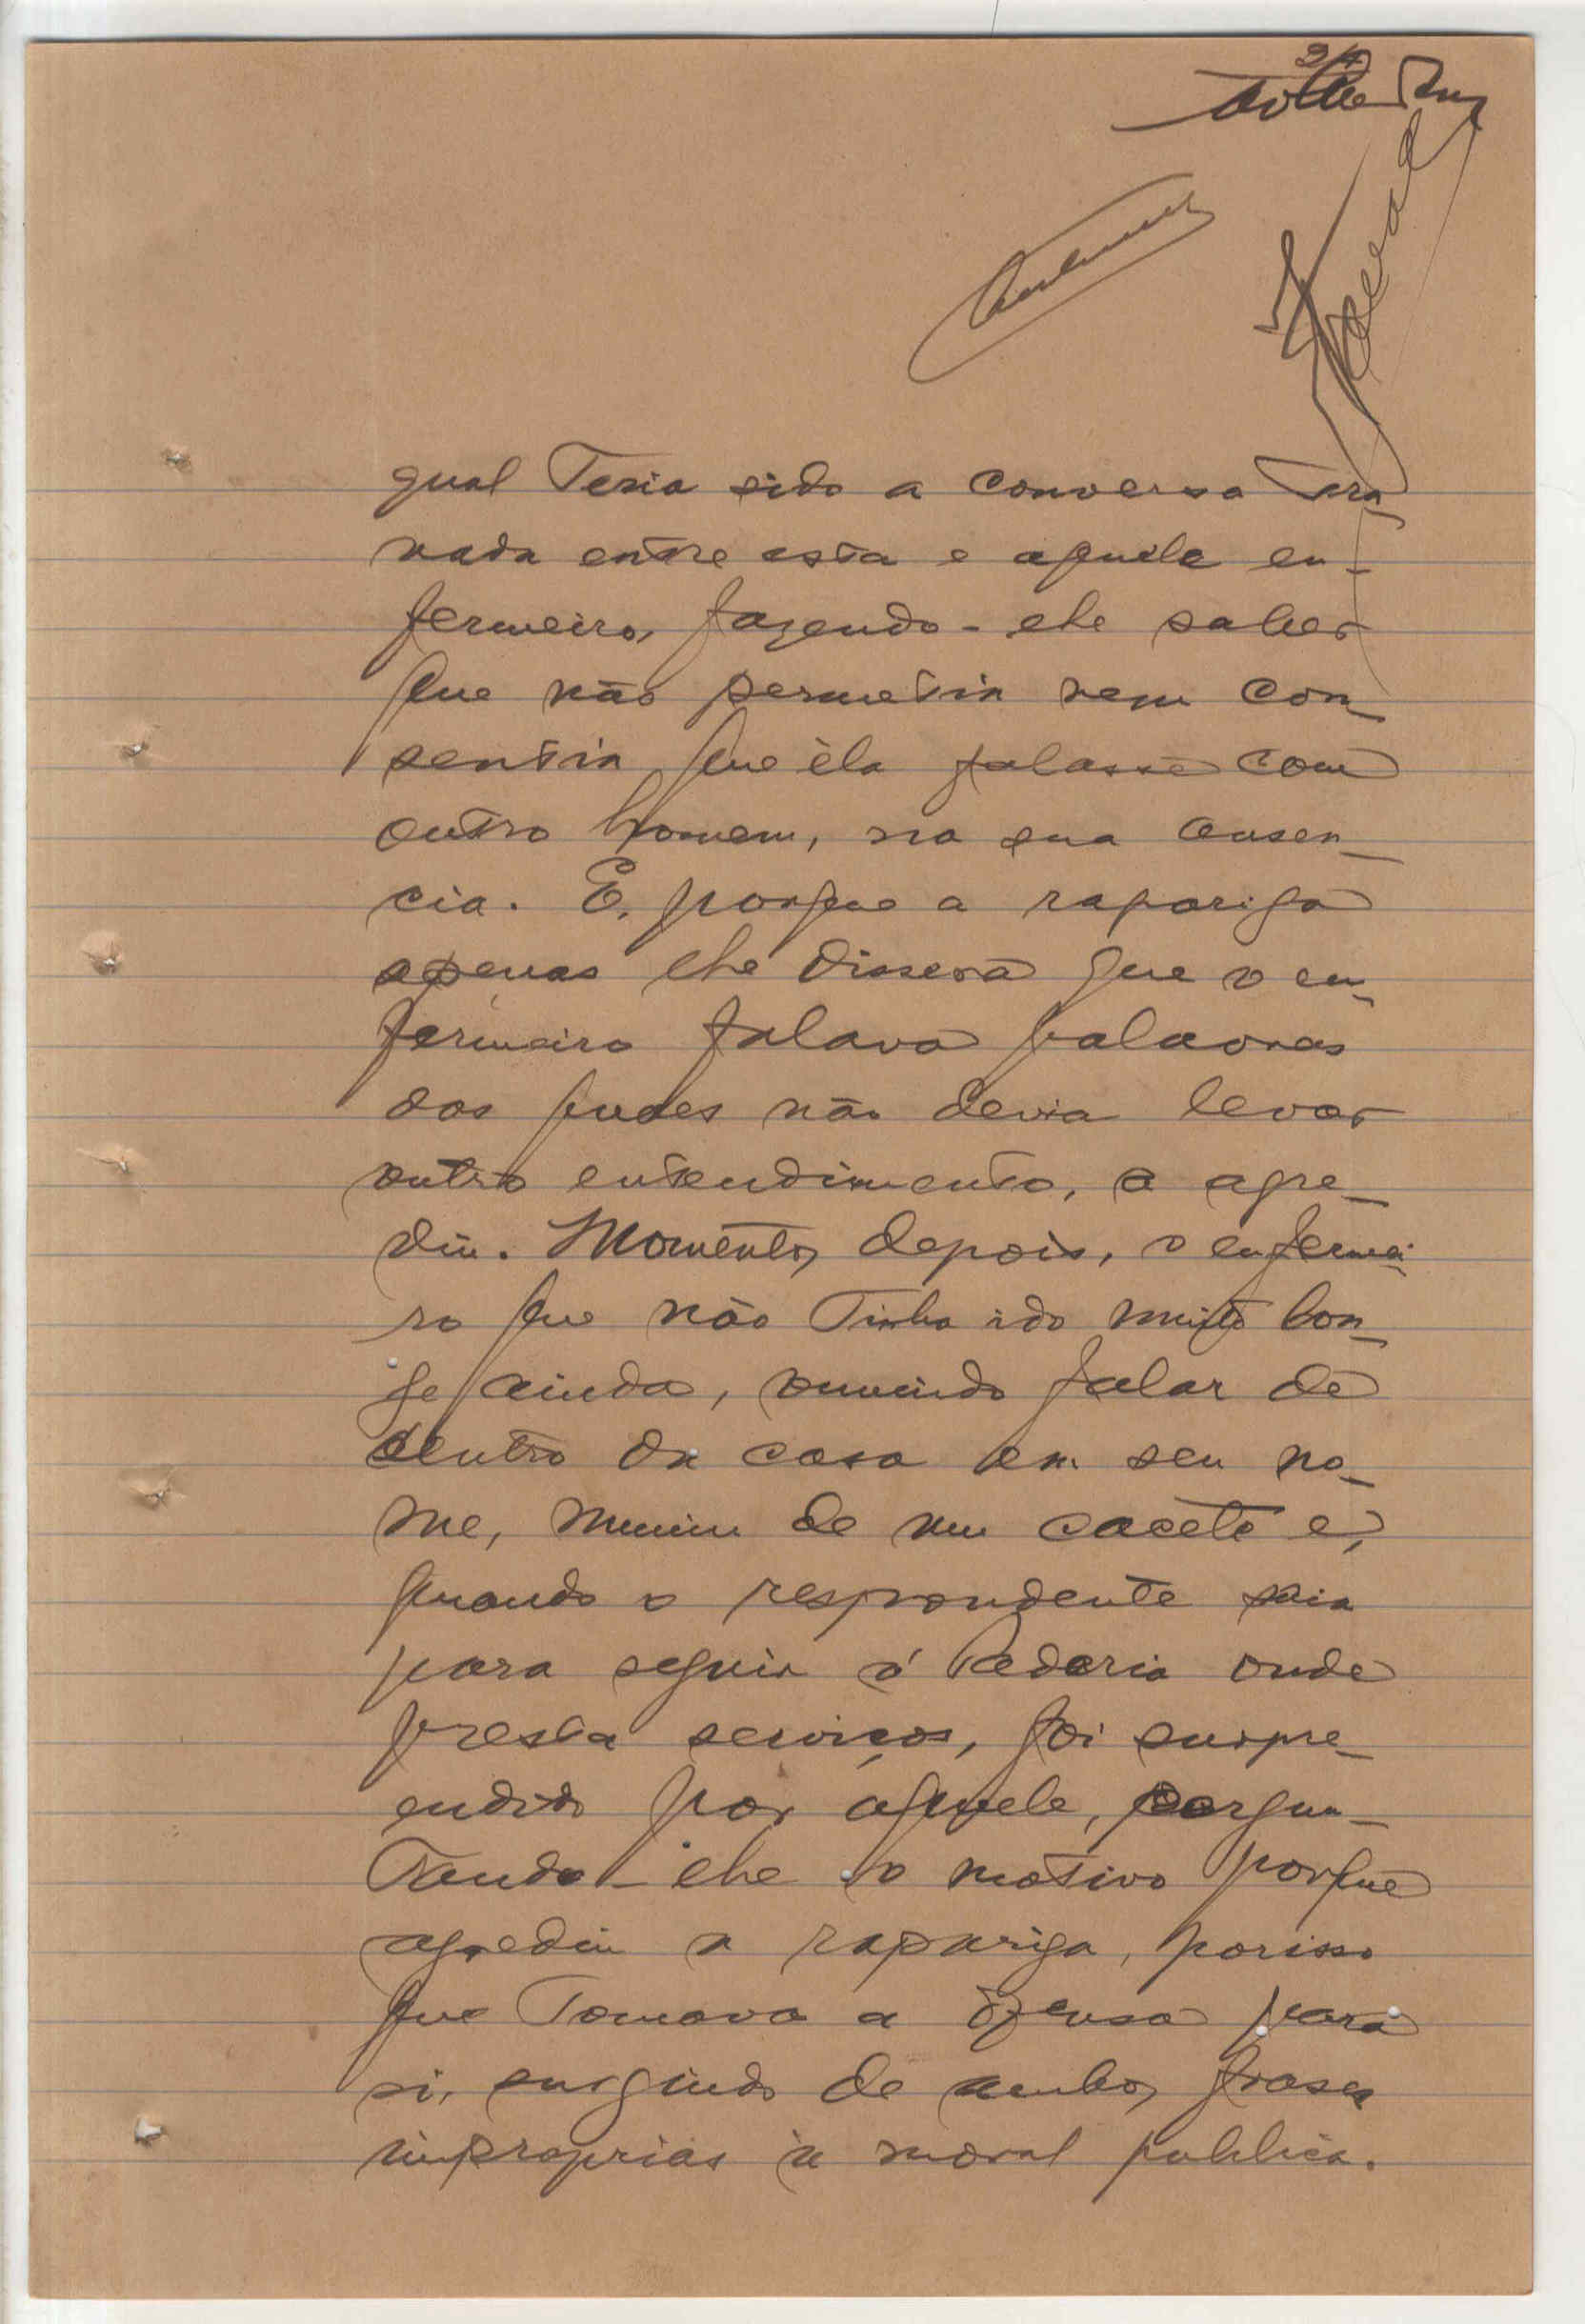 24
qual Teria sido a conversa Tra-
vada entre esta e aquele en-
fermeiro, fazendo-lhe saber
que não permetia nem con-
sentia que éla falasse com
outro homem, na sua ausen-
cia. E, porque a rapariga
apenas lhe dissera que o en-
fermeiro falava palavras
das quaes não devia levar
outro entendimento, a agre-
diu. Momentos depois, o enfermei-
ro que não Tinha ido muito lon-
ge ainda, ouvindo falar de
dentro da casa em seu no-
me, muniu de um cacête e,
quando o respondente saia
para seguir á Padaria onde
presta serviços, foi surpre-
endido por aquele, pergun-
Tando-lhe o motivo porque
agrediu a rapariga, porisso
que Tomava a ofensa para
si, surgindo de ambos frases
improprias à moral publica.